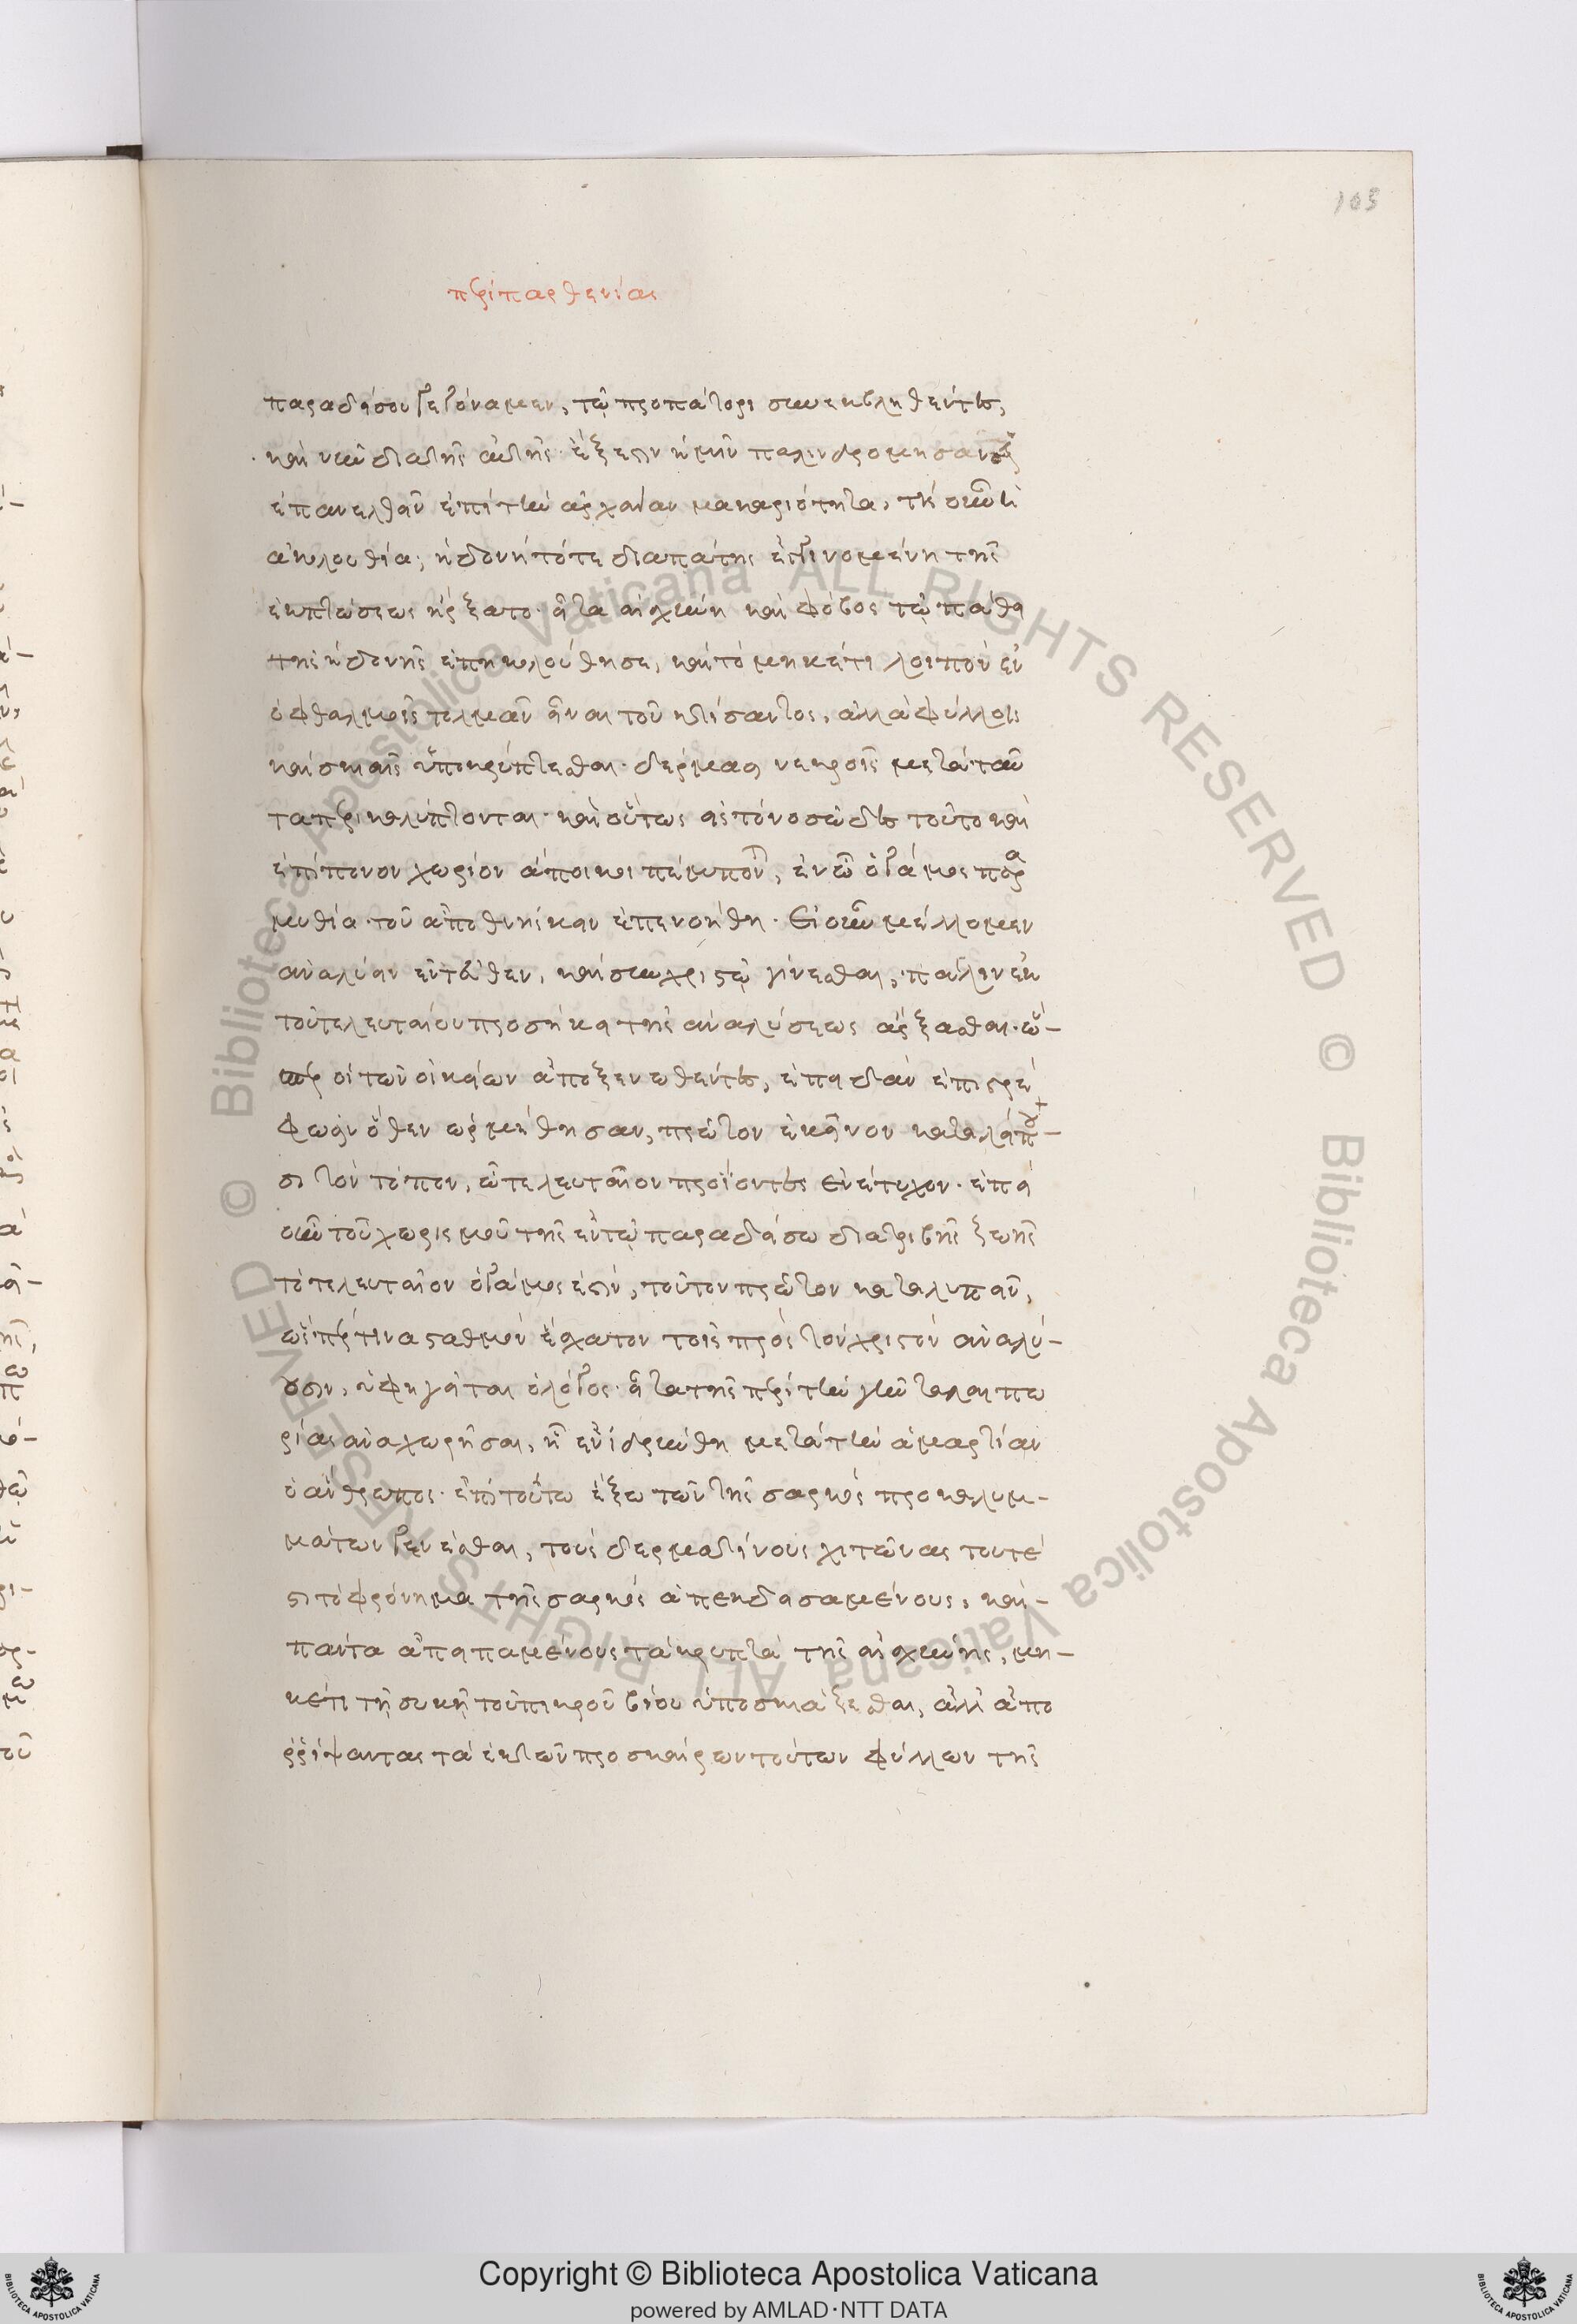 103
περὶ παρθενίας
παραδείσου γεγόναμεν, τῷ προπάτορι συνεκβληθέντες,
καὶ νῦν διὰ τῆς αὐτῆς ἔξεστιν ἡμῖν παλινδρομήσασιν
ἐπανελθεῖν ἐπὶ τὴν ἀρχαίαν μακαριότητα, τίς οὖν ἡ
ἀκολουθία; ἡδονὴ τότε δι' ἀπάτης ἐγγινομένη τῆς
ἐκπτώσεως ἤρξατο· εἶτα αἰσχύνη καὶ φόβος τῷ πάθει
τῆς ἡδονῆς ἐπηκολούθησε, καὶ τὸ μηκέτι λοιπὸν ἐν
ὀφθαλμοῖς τολμᾶν εἶναι τοῦ κτίσαντος, ἀλλὰ φύλλοις
καὶ σκιαῖς ὑποκρύπτεσθαι· δέρμασι νεκροῖς μετὰ ταῦ
τα περικαλύπτονται· καὶ οὕτως εἰς τὸ νοσῶδες τοῦτο καὶ
ἐπίπονον χωρίον ἄποικοι πέμπονται, ἐν ᾧ ὁ γάμος παρα
μυθία τοῦ ἀποθνήσκειν ἐπενοήθη. Εἰ οὖν μέλλομεν
ἀναλύειν ἐντεῦθεν, καὶ σὺν χριστῷ γίνεσθαι, πάλιν ἐκ
τοῦ τελευταίου προσήκει τῆς ἀναλύσεως ἄρξασθαι· ὥσ-
περ οἱ τῶν οἰκείων ἀποξενωθέντες, ἐπειδὰν ἐπιστρέ
φωσιν ὅθεν ὡρμήθησαν, πρῶτον ἐκεῖνον καταλείπου-
σι τὸν τόπον, ᾧ τελευταῖον προϊόντες ἐνέτυχον· ἐπεὶ
οὖν τοῦ χωρισμοῦ τῆς ἐν τῷ παραδείσω διατριβῆς ζωῆς
τὸ τελευταῖον ὁ γάμος ἐστὶν, τοῦτον πρῶτον καταλιπεῖν,
ὥσπερ τινα σταθμὸν ἔσχατον τοῖς πρὸς τὸν χριστὸν ἀναλύ-
ουσιν, ὑφηγεῖται ὁ λόγος· εἶτα τῆς περὶ τὴν γῆν ταλαιπω
ρίας ἀναχωρῆσαι, ᾗ ἐνιδρύθη μετὰ τὴν ἁμαρτίαν
ὁ ἄνθρωπος· ἐπὶ τούτω ἔξω τῶν τῆς σαρκὸς προκαλυμ-
μάτων γενέσθαι, τοὺς δερματίνους χιτῶνας τουτέ
στι τὸ φρόνημα τῆς σαρκὸς ἀπεκδυσαμένους, καὶ-
πάντα ἀπειπαμένους τὰ κρυπτὰ τῆς αἰσχύνης, μη-
κέτι τῇ συκῇ τοῦ πικροῦ βίου ὑποσκιάζεσθαι, ἀλλ' ἀπο
ῤῥίψαντας τὰ ἐκ τῶν προσκαίρων τούτων φύλλων τῆς
Copyright © Biblioteca Apostolica Vaticana
powered by AMLAD·NTT DATA